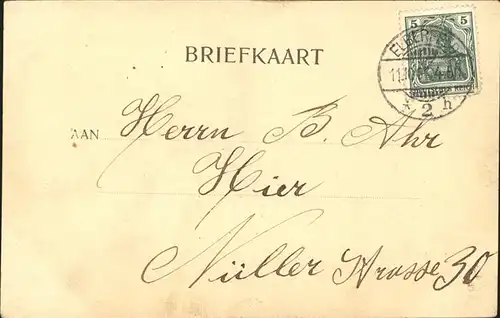 5 5
BRIEFKAART
2 h
AAN Herrn B. Ahr
Hier
Nüller Strasse 30